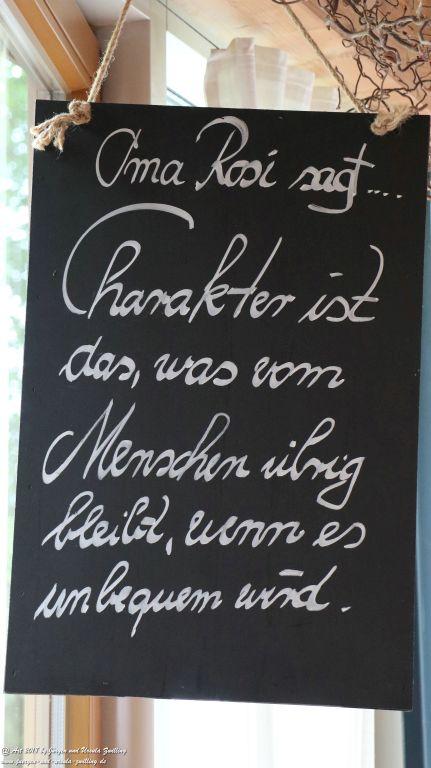 Oma Rosi sagt....
Charakter ist
das, was vom
Menschen übrig
bleibt, wenn es
unbequem wird.
(C) Art 2017 by Juergen und Ursula Zwilling
www.juergen-und-ursula-zwilling.de